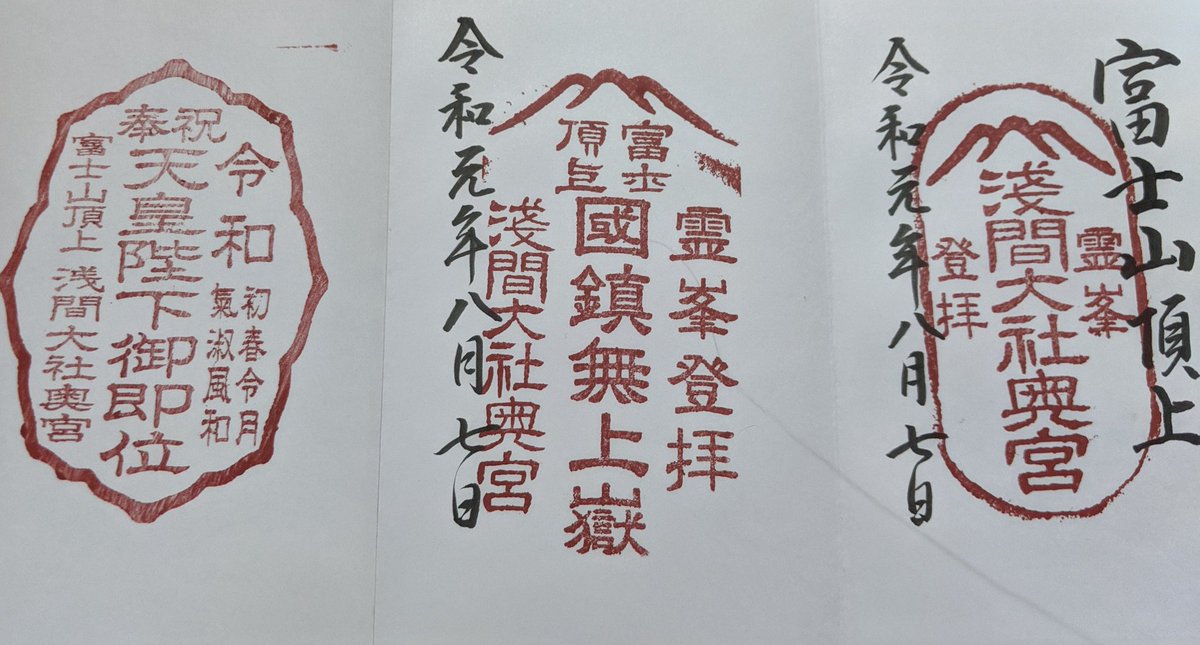 富士山頂上
霊峯
淺間大社奥宮
登拝
令和元年八月七日
霊峯登拝
富士
頂上
國鎮無上嶽
淺間大社奥宮
令和元年八月七日
令和
初春令月
氣淑風和
奉祝
天皇陛下御即位
富士山頂上 浅間大社奥宮